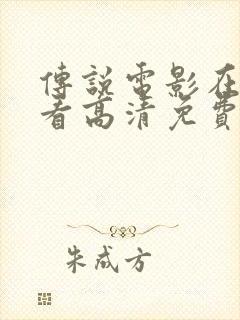 傳說電影在
看高清免費
朱成方